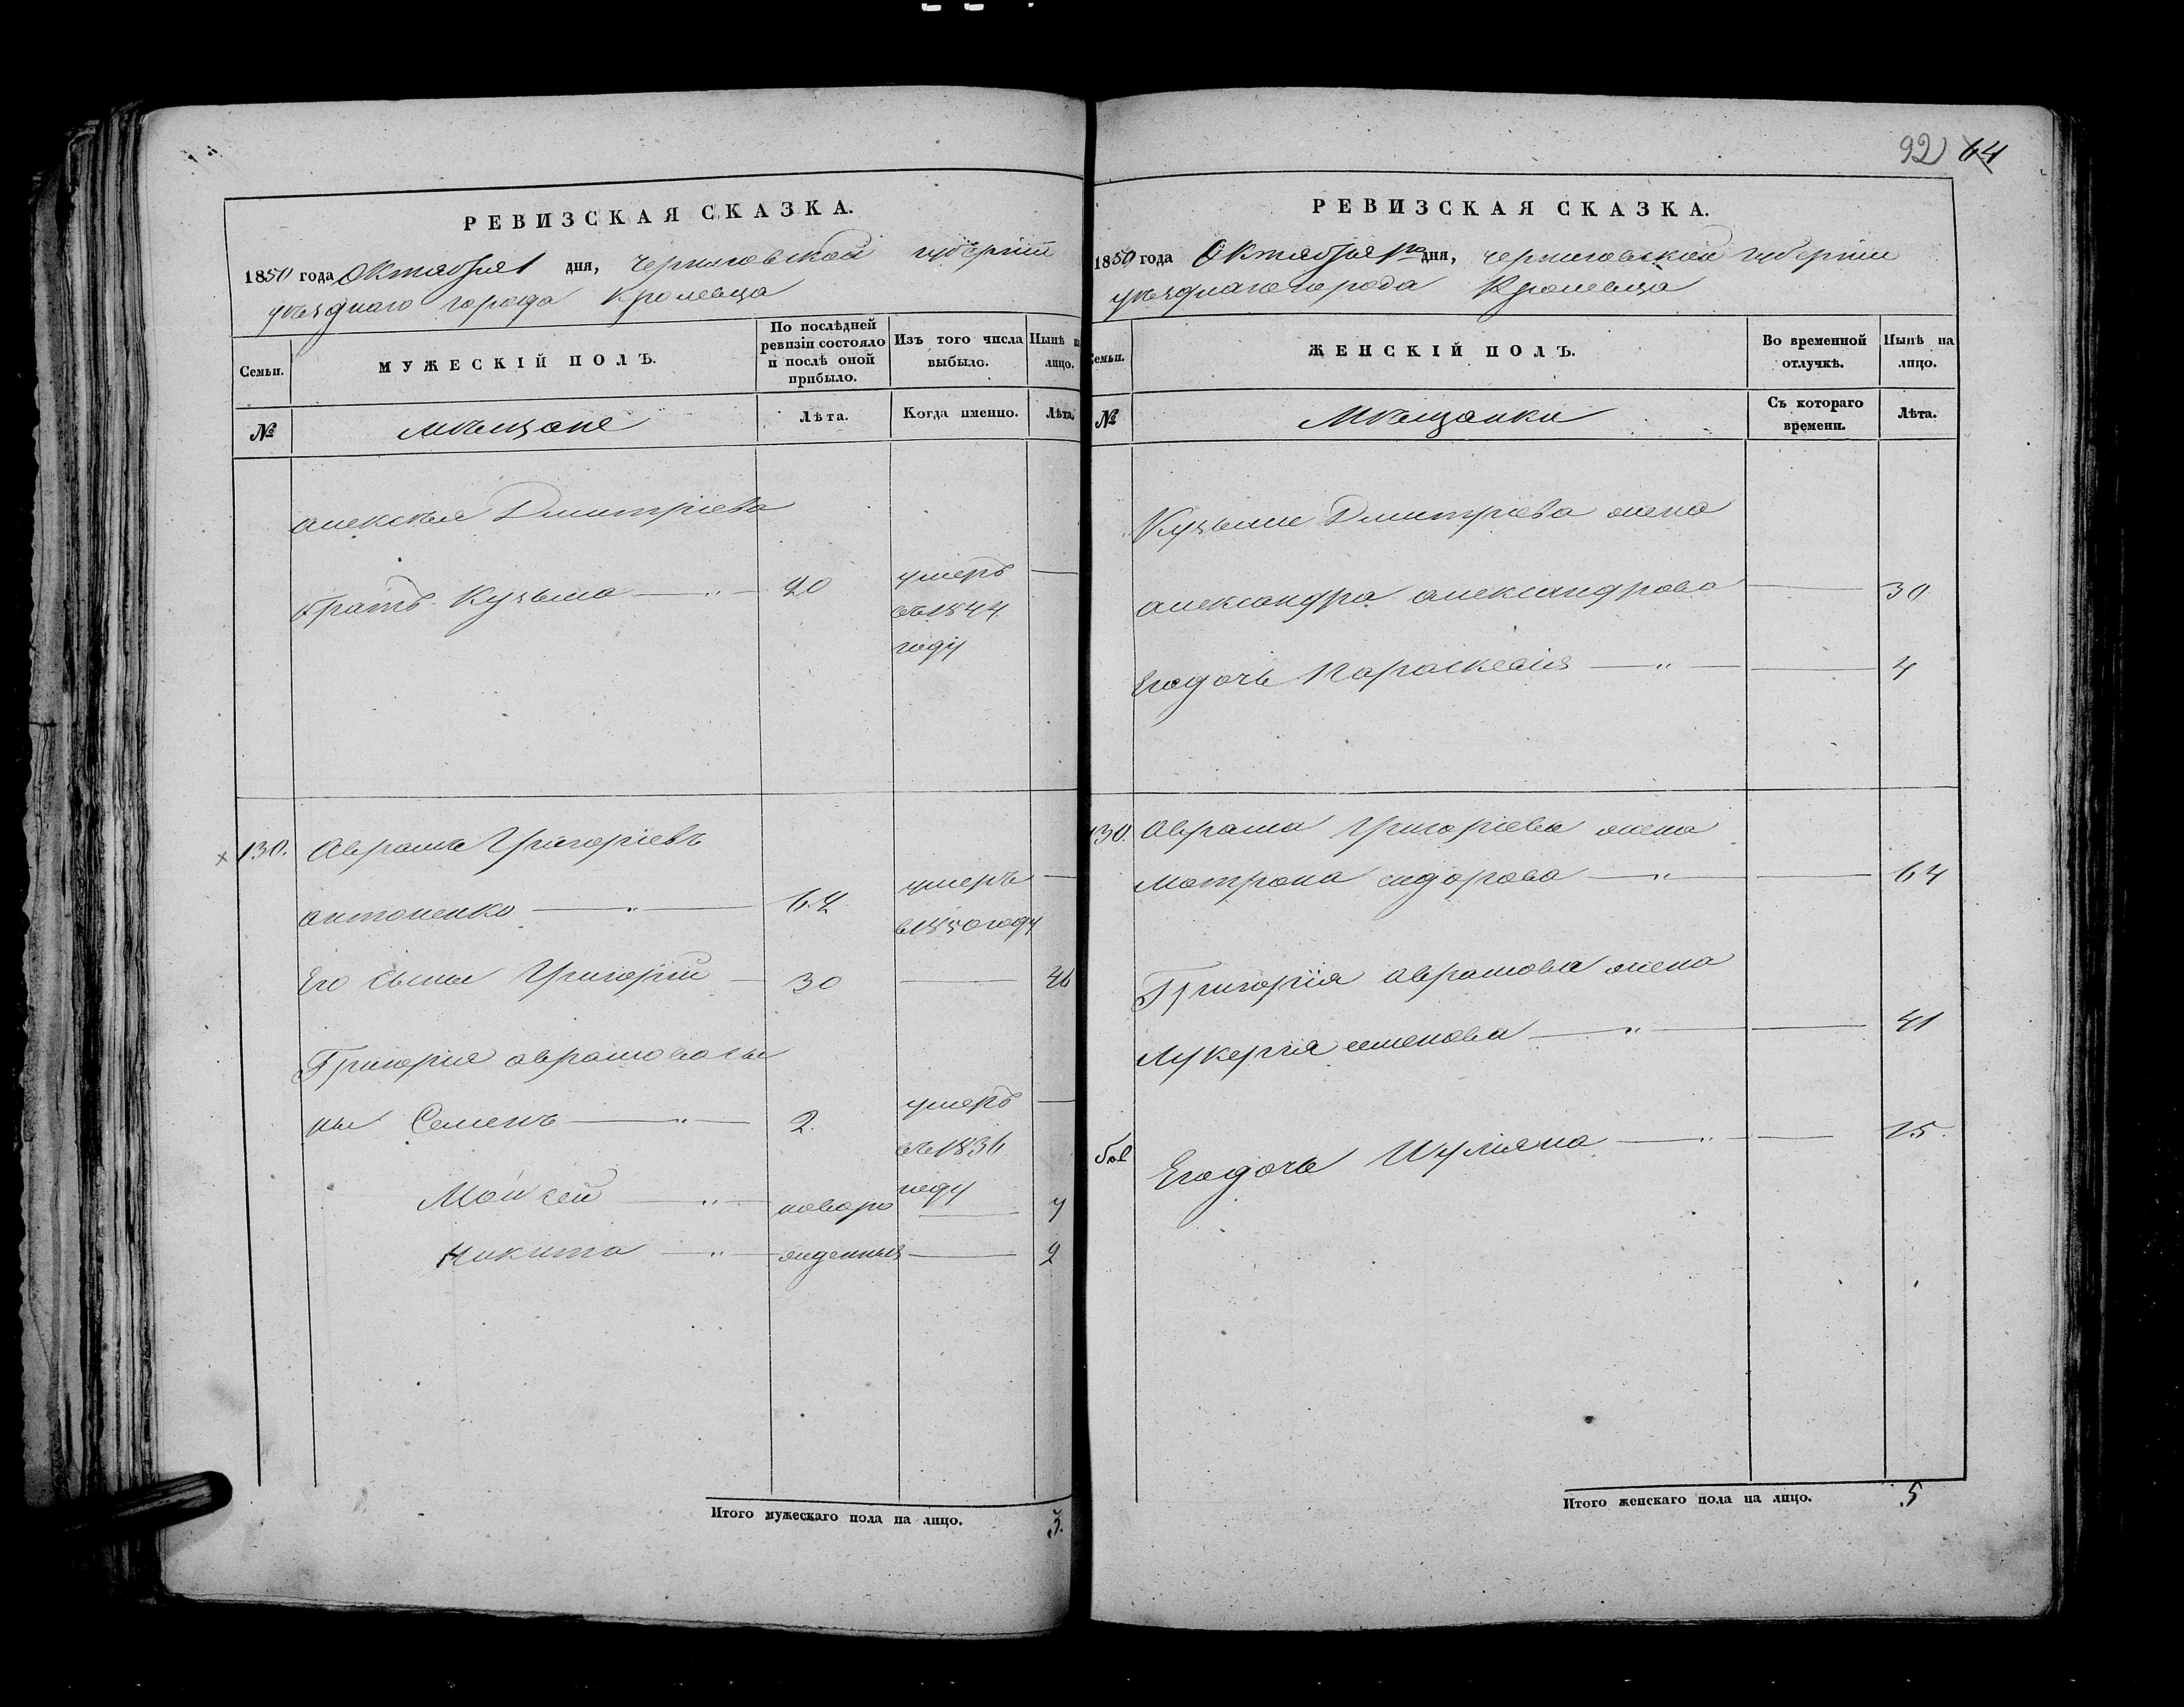 92 64
РЕВИЗСКАЯ СКАЗКА.
1850 года Октября 1 дня, Черниговской губерніи
уѣзднаго города Кролевца
Семьи.
МУЖЕСКІЙ ПОЛЪ.
По послѣдней ревизіи состояло и послѣ оной прибыло.
Изъ того числа выбыло.
Нынѣ на лицо.
№
мѣщане
Лѣта.
Когда именно.
Лѣта.
алексѣя Дмитріева
братъ Кузьма — " — 20 умеръ —
въ 1844
году
130. Аврамъ Григоріевъ
антоненко — " — 64 умеръ —
в 1850 году
Его сыны Григорій — 30 — 46
Григорія аврамова сы
ны Семенъ — " — 2. умеръ —
въ 1836
году
Мойсей — " — новоро — 7
Никита — " — жденныя — 2
Итого мужескаго пола на лицо. 3.
РЕВИЗСКАЯ СКАЗКА.
1850 года Октября 1го дня, черниговской губерніи
уѣзднаго города Кролевца
Семьи.
ЖЕНСКІЙ ПОЛЪ.
Во временной отлучкѣ.
Нынѣ на лицо.
№
Мѣщанки
Съ котораго времени.
Лѣта.
Кузьмы Дмитріева жена
александра александрова — 30
Его дочь Параскевія — " — 4
130. Аврама Григоріева жена
Мотрона сидорова — " — 64
Григорія аврамова жена
Лукерія семенова — " — 41
Его дочь Иулияна — " — 15.
Итого женскаго пола на лицо. 5